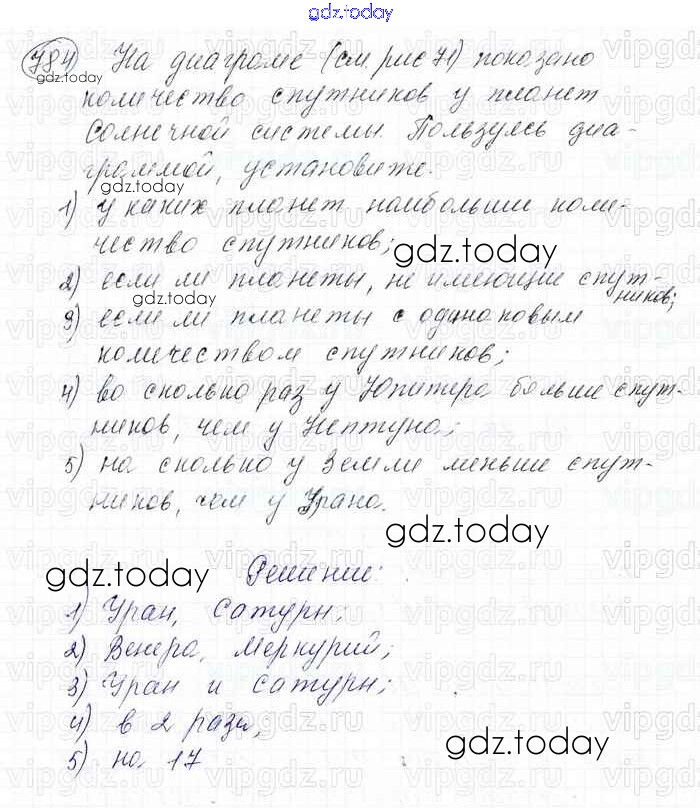 gdz.today
784) На диаграме (см. рис 71) показано
количество спутников у планет
Солнечной системы. Пользуясь диа-
граммой, установите.
1) у каких планет наибольши коли-
чество спутников;
2) если ли планеты, не имеющие спут-
ников;
3) если ли планеты с одинаковым
количеством спутников;
4) во сколько раз у Юпитера больше спут-
ников, чем у Нептуна;
5) на сколько у Земли меньше спут-
ников, чем у Урана.
Решение:
1) Уран, Сатурн;
2) Венера, Меркурий;
3) Уран и Сатурн;
4) в 2 раза;
5) на 17
gdz.today
gdz.today
gdz.today
gdz.today
gdz.today
gdz.today
gdz.today